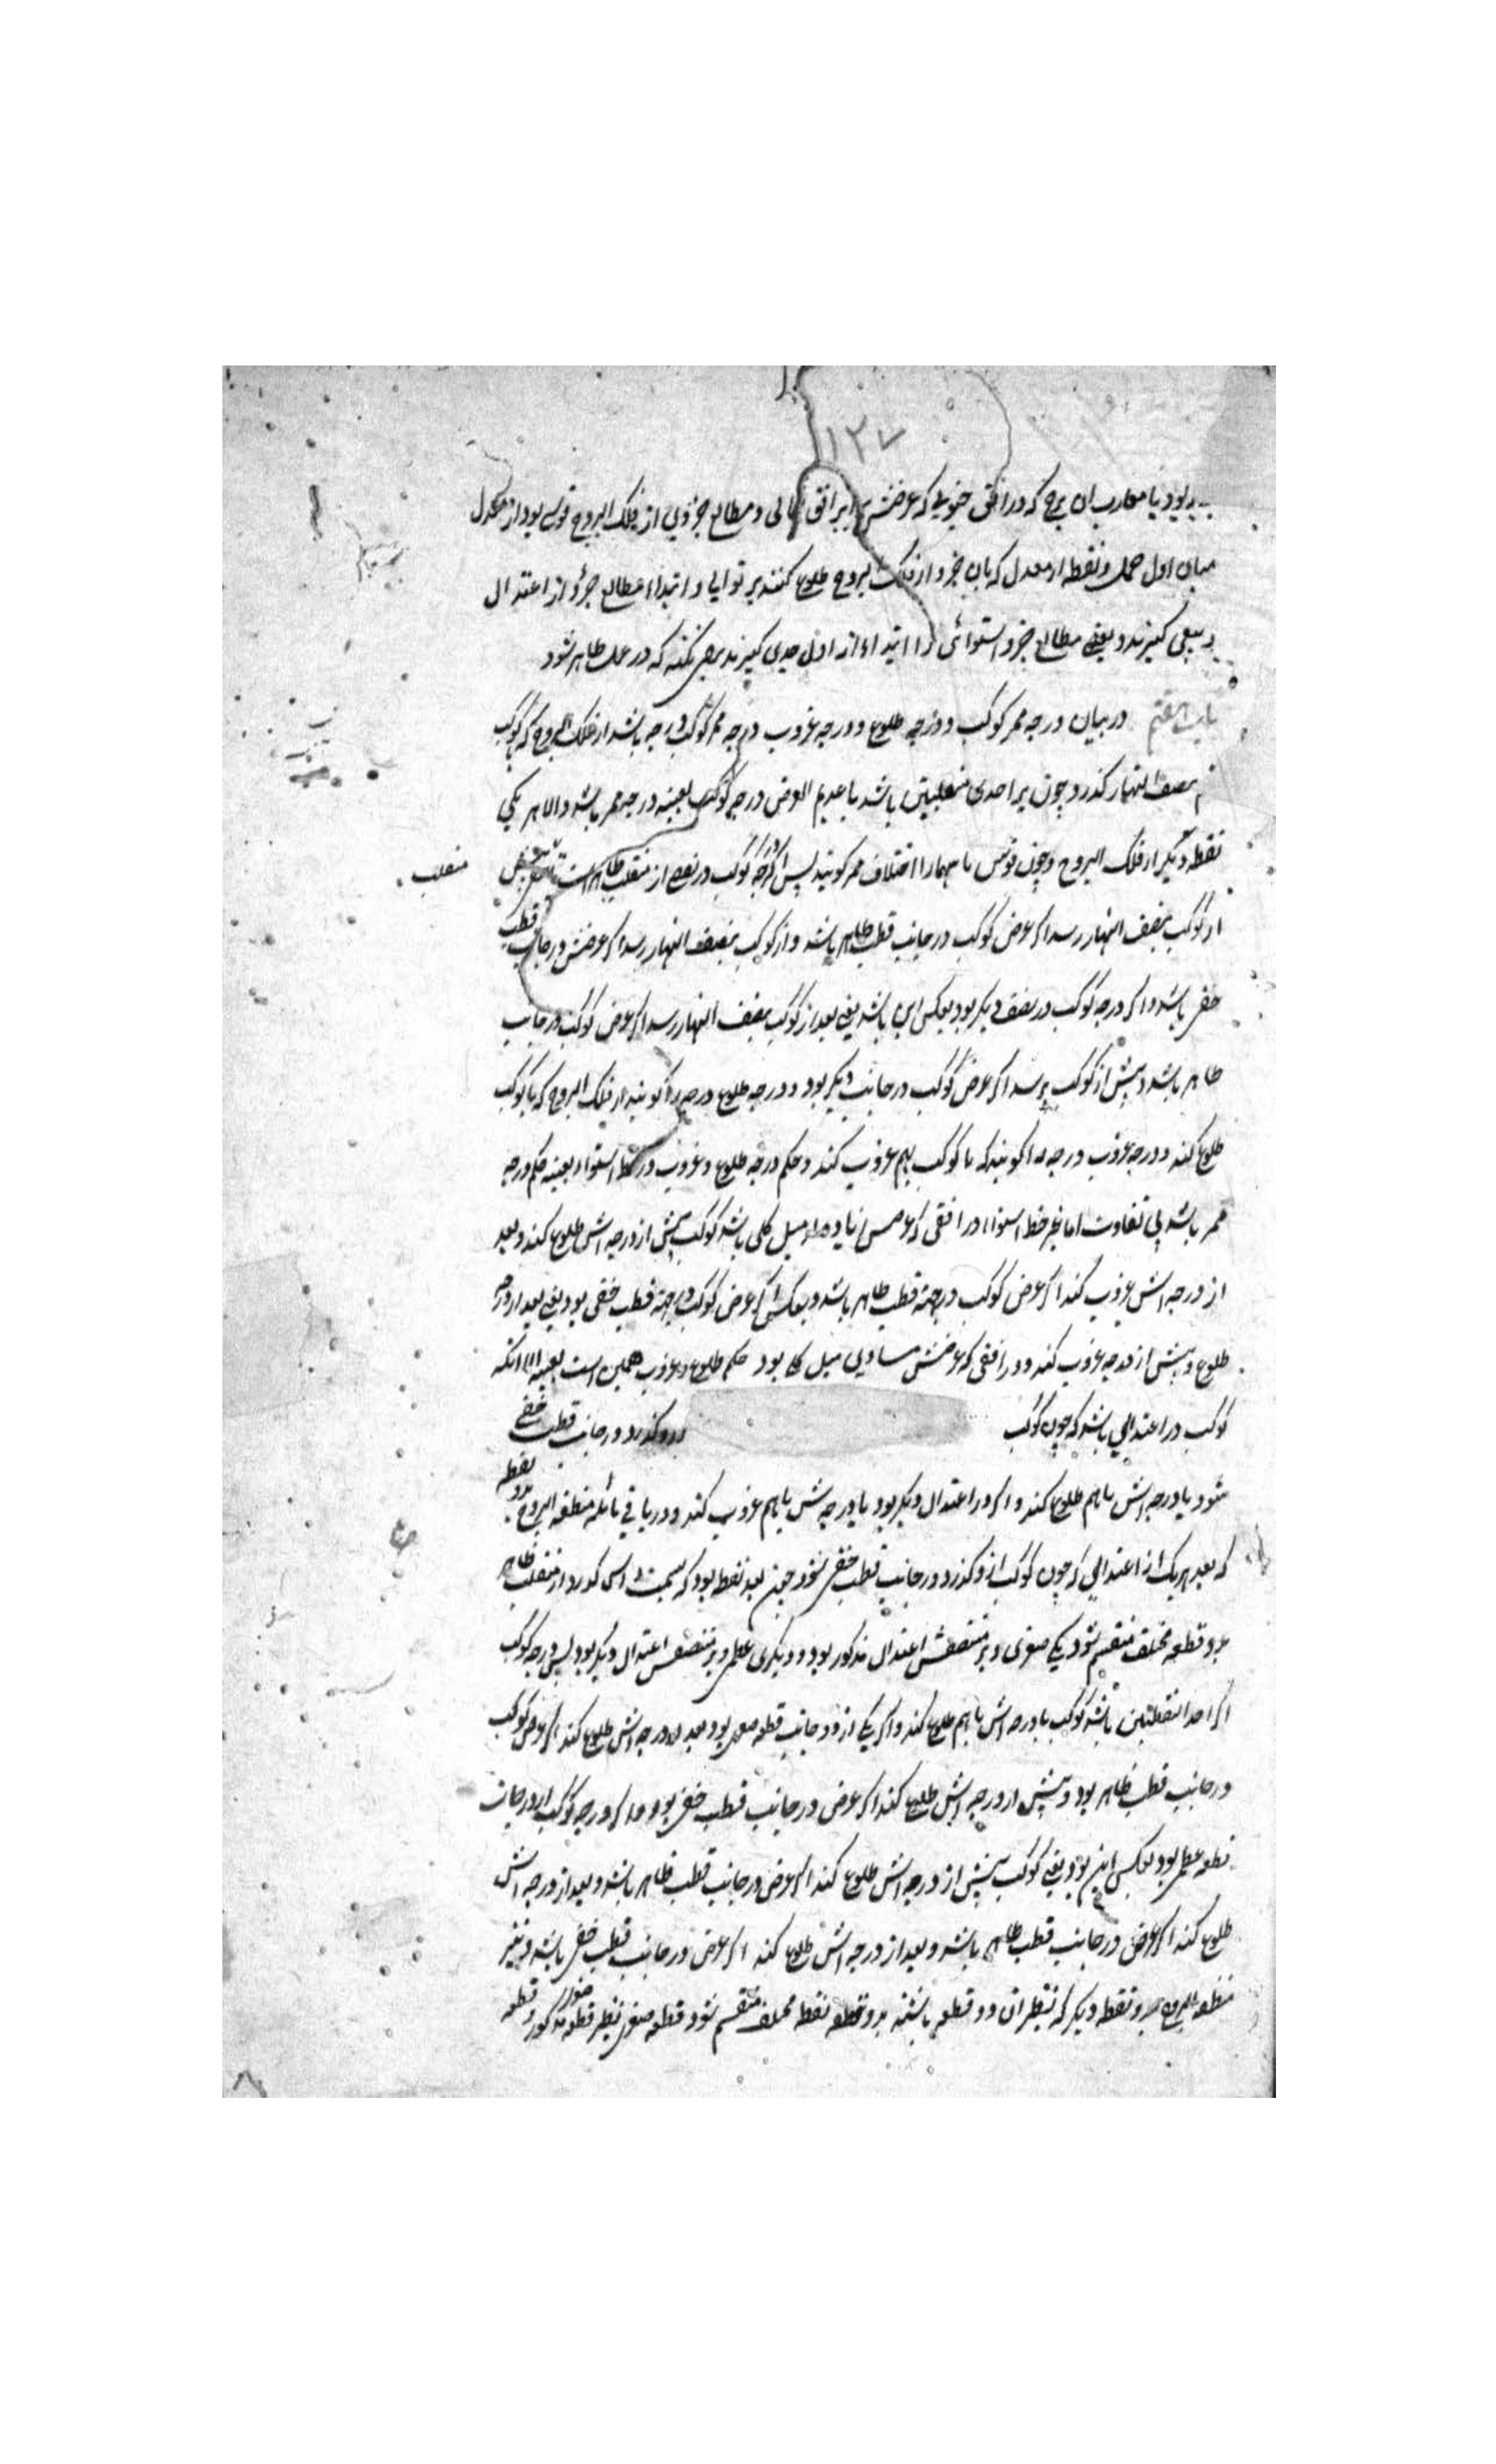 ۱۲۷
بود با مغارب ان برج که در افق جنوبی که عرضش برابر افق شمالی و مطالع جزوی از فلک البروج قوسی بود از معدل
میان اول حمل و نقطه از معدل که بان جزو از فلک البروج طلوع کنند بر توالی و ابتداء مطالع جزو از اعتدال
ربیعی کیرند و بعضی مطالع جزو استوائی را ابتداء از اول جدی کیرند برای نکته که در عمل ظاهر شود
باب هفتم در بیان درجه ممر کوکب و درجه طلوع و درجه غروب درجه ممر کوکب درجه باشد از فلک البروج که با کوکب
بنصف النهار کذرد و چون بر احدی منقلبین باشد یا عدیم العرض درجه کوکب بعینه درجه ممر باشد والا هر یکی
نقطه دیکر از فلک البروج و چون قوس ما بینهما را اختلاف ممر کویند پس اکر درجه کوکب در نصفی از منقلب ظاهر است تا منقلب
از کوکب بنصف النهار رسد اکر عرض کوکب در جانب قطب ظاهر باشد و از کوکب بنصف النهار رسد اکر عرضش در جانب قطب
خفی باشد و اکر درجه کوکب در نصف دیکر بود بعکس این باشد یعنی بعد از کوکب بنصف النهار رسد اکر عرض کوکب در جانب
ظاهر باشد و پیش از کوکب برسد اکر عرض کوکب در جانب دیکر بود و درجه طلوع درجه را کویند از فلک البروج که با کوکب
طلوع کند و درجه غروب درجه را کویند که با کوکب بهم غروب کند و حکم درجه طلوع و غروب در خط استواء بعینه حکم درجه
ممر باشد بی تفاوت اما غیر خط استوا در افقی که عرضش زیاده از میل کلی باشد کوکب پیش از درجه اش طلوع کند و بعد
از درجه اش غروب کند اکر عرض کوکب در جهة قطب ظاهر باشد و بعکس اکر عرض کوکب در جهة قطب خفی بود یعنی بعد از درجه
طلوع و پیش از درجه غروب کند و در افقی که عرضش مساوی میل کلی بود حکم طلوع و غروب همین است بعینه الا انکه
کوکب در اعتدالی باشد که چون کوکب ازو کذرد در جانب قطب خفی
شود با درجه اش باهم طلوع کند و اکر در اعتدال دیکر بود با درجه اش باهم غروب کند و در باقی مائله منطقه البروج بدو نقطه
که بعد هر یک از اعتدالی که چون کوکب ازو کذرد در جانب قطب خفی شود چون بعد نقطه بود که بسمت راس کذرد از منقلب ظاهر
بدو قطعه مختلف منقسم شود یکی صغری و بر منتصفش اعتدال مذکور بود و دیکری عظمی و بر منتصفش اعتدال دیکر بود پس درجه کوکب
اکر احد النقطتین باشد کوکب با درجه اش باهم طلوع کند و اکر یکی از دو جانب قطعه صغری بود بعد از درجه اش طلوع کند اکر عرض کوکب
در جانب قطب ظاهر بود و پیش از درجه اش طلوع کند اکر عرض در جانب قطب خفی بود و اکر درجه کوکب از درجات
قطعه عظمی بود بعکس این بود یعنی کوکب پیش از درجه اش طلوع کند اکر عرض در جانب قطب ظاهر باشد و بعد از درجه اش
طلوع کند اکر عرض در جانب قطب ظاهر باشد و بعد از درجه اش طلوع کند اکر عرض در جانب قطب خفی باشد و نیز
منطقه البروج بدو نقطه دیکر که نظیر ان دو قطعه باشند بدو قطعه نقطه مختلف منقسم شود قطعه صغری نظیر قطعه مذکور و قطعه
منقلب